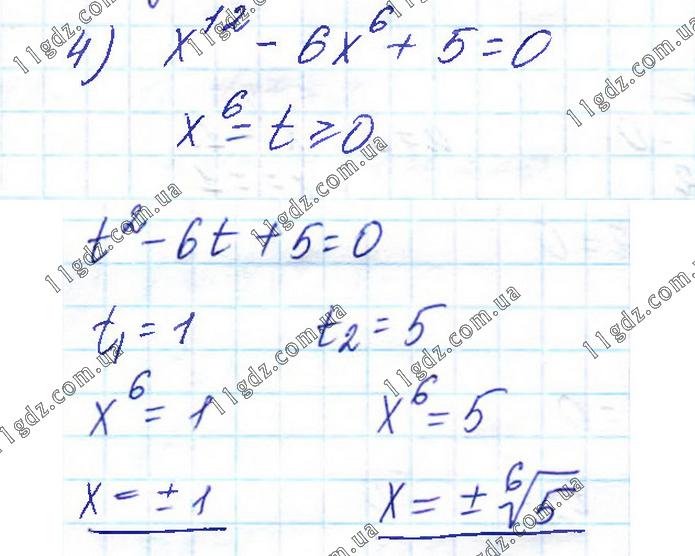 4) x¹² - 6x⁶ + 5 = 0
x⁶ = t ≥ 0
t² - 6t + 5 = 0
t₁ = 1 t₂ = 5
x⁶ = 1 x⁶ = 5
x = ± 1 x = ± ⁶√5
11gdz.com.ua
11gdz.com.ua
11gdz.com.ua
11gdz.com.ua
11gdz.com.ua
11gdz.com.ua
11gdz.com.ua
11gdz.com.ua
11gdz.com.ua
11gdz.com.ua
11gdz.com.ua